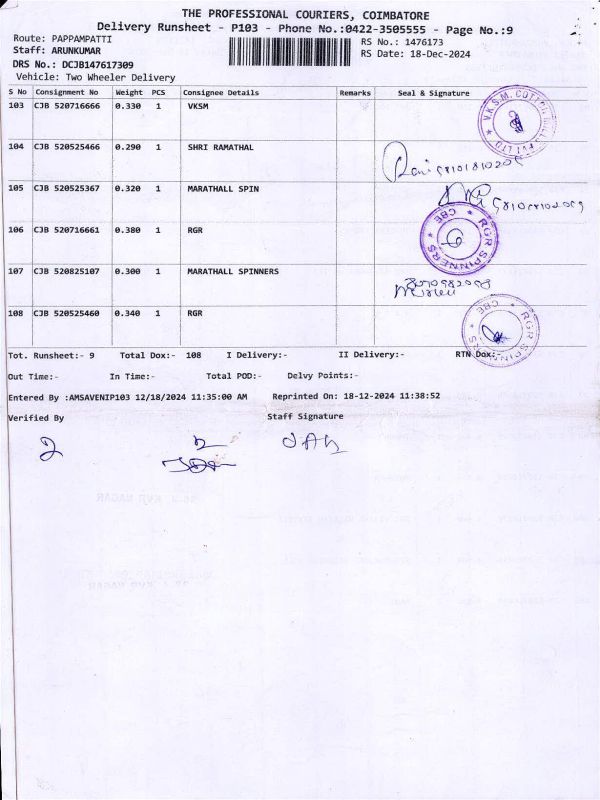 THE PROFESSIONAL COURIERS, COIMBATORE
Delivery Runsheet - P103 - Phone No.:0422-3505555 - Page No.:9
Route: PAPPAMPATTI
RS No.: 1476173
Staff: ARUNKUMAR
RS Date: 18-Dec-2024
DRS No.: DCJB147617309
Vehicle: Two Wheeler Delivery
S No Consignment No Weight PCS Consignee Details Remarks Seal & Signature
103 CJB 520716666 0.330 1 VKSM
V.K.S.M. COTTON MILLS PVT LTD
104 CJB 520525466 0.290 1 SHRI RAMATHAL
105 CJB 520525367 0.320 1 MARATHALL SPIN
106 CJB 520716661 0.380 1 RGR
RGR SPINNERS ★ CBE ★
107 CJB 520825107 0.300 1 MARATHALL SPINNERS
108 CJB 520525460 0.340 1 RGR
RGR SPINNERS ★ CBE ★
Tot. Runsheet:- 9 Total Dox:- 108 I Delivery:- II Delivery:- RTN Dox:-
Out Time:- In Time:- Total POD:- Delvy Points:-
Entered By :AMSAVENIP103 12/18/2024 11:35:00 AM Reprinted On: 18-12-2024 11:38:52
Verified By Staff Signature